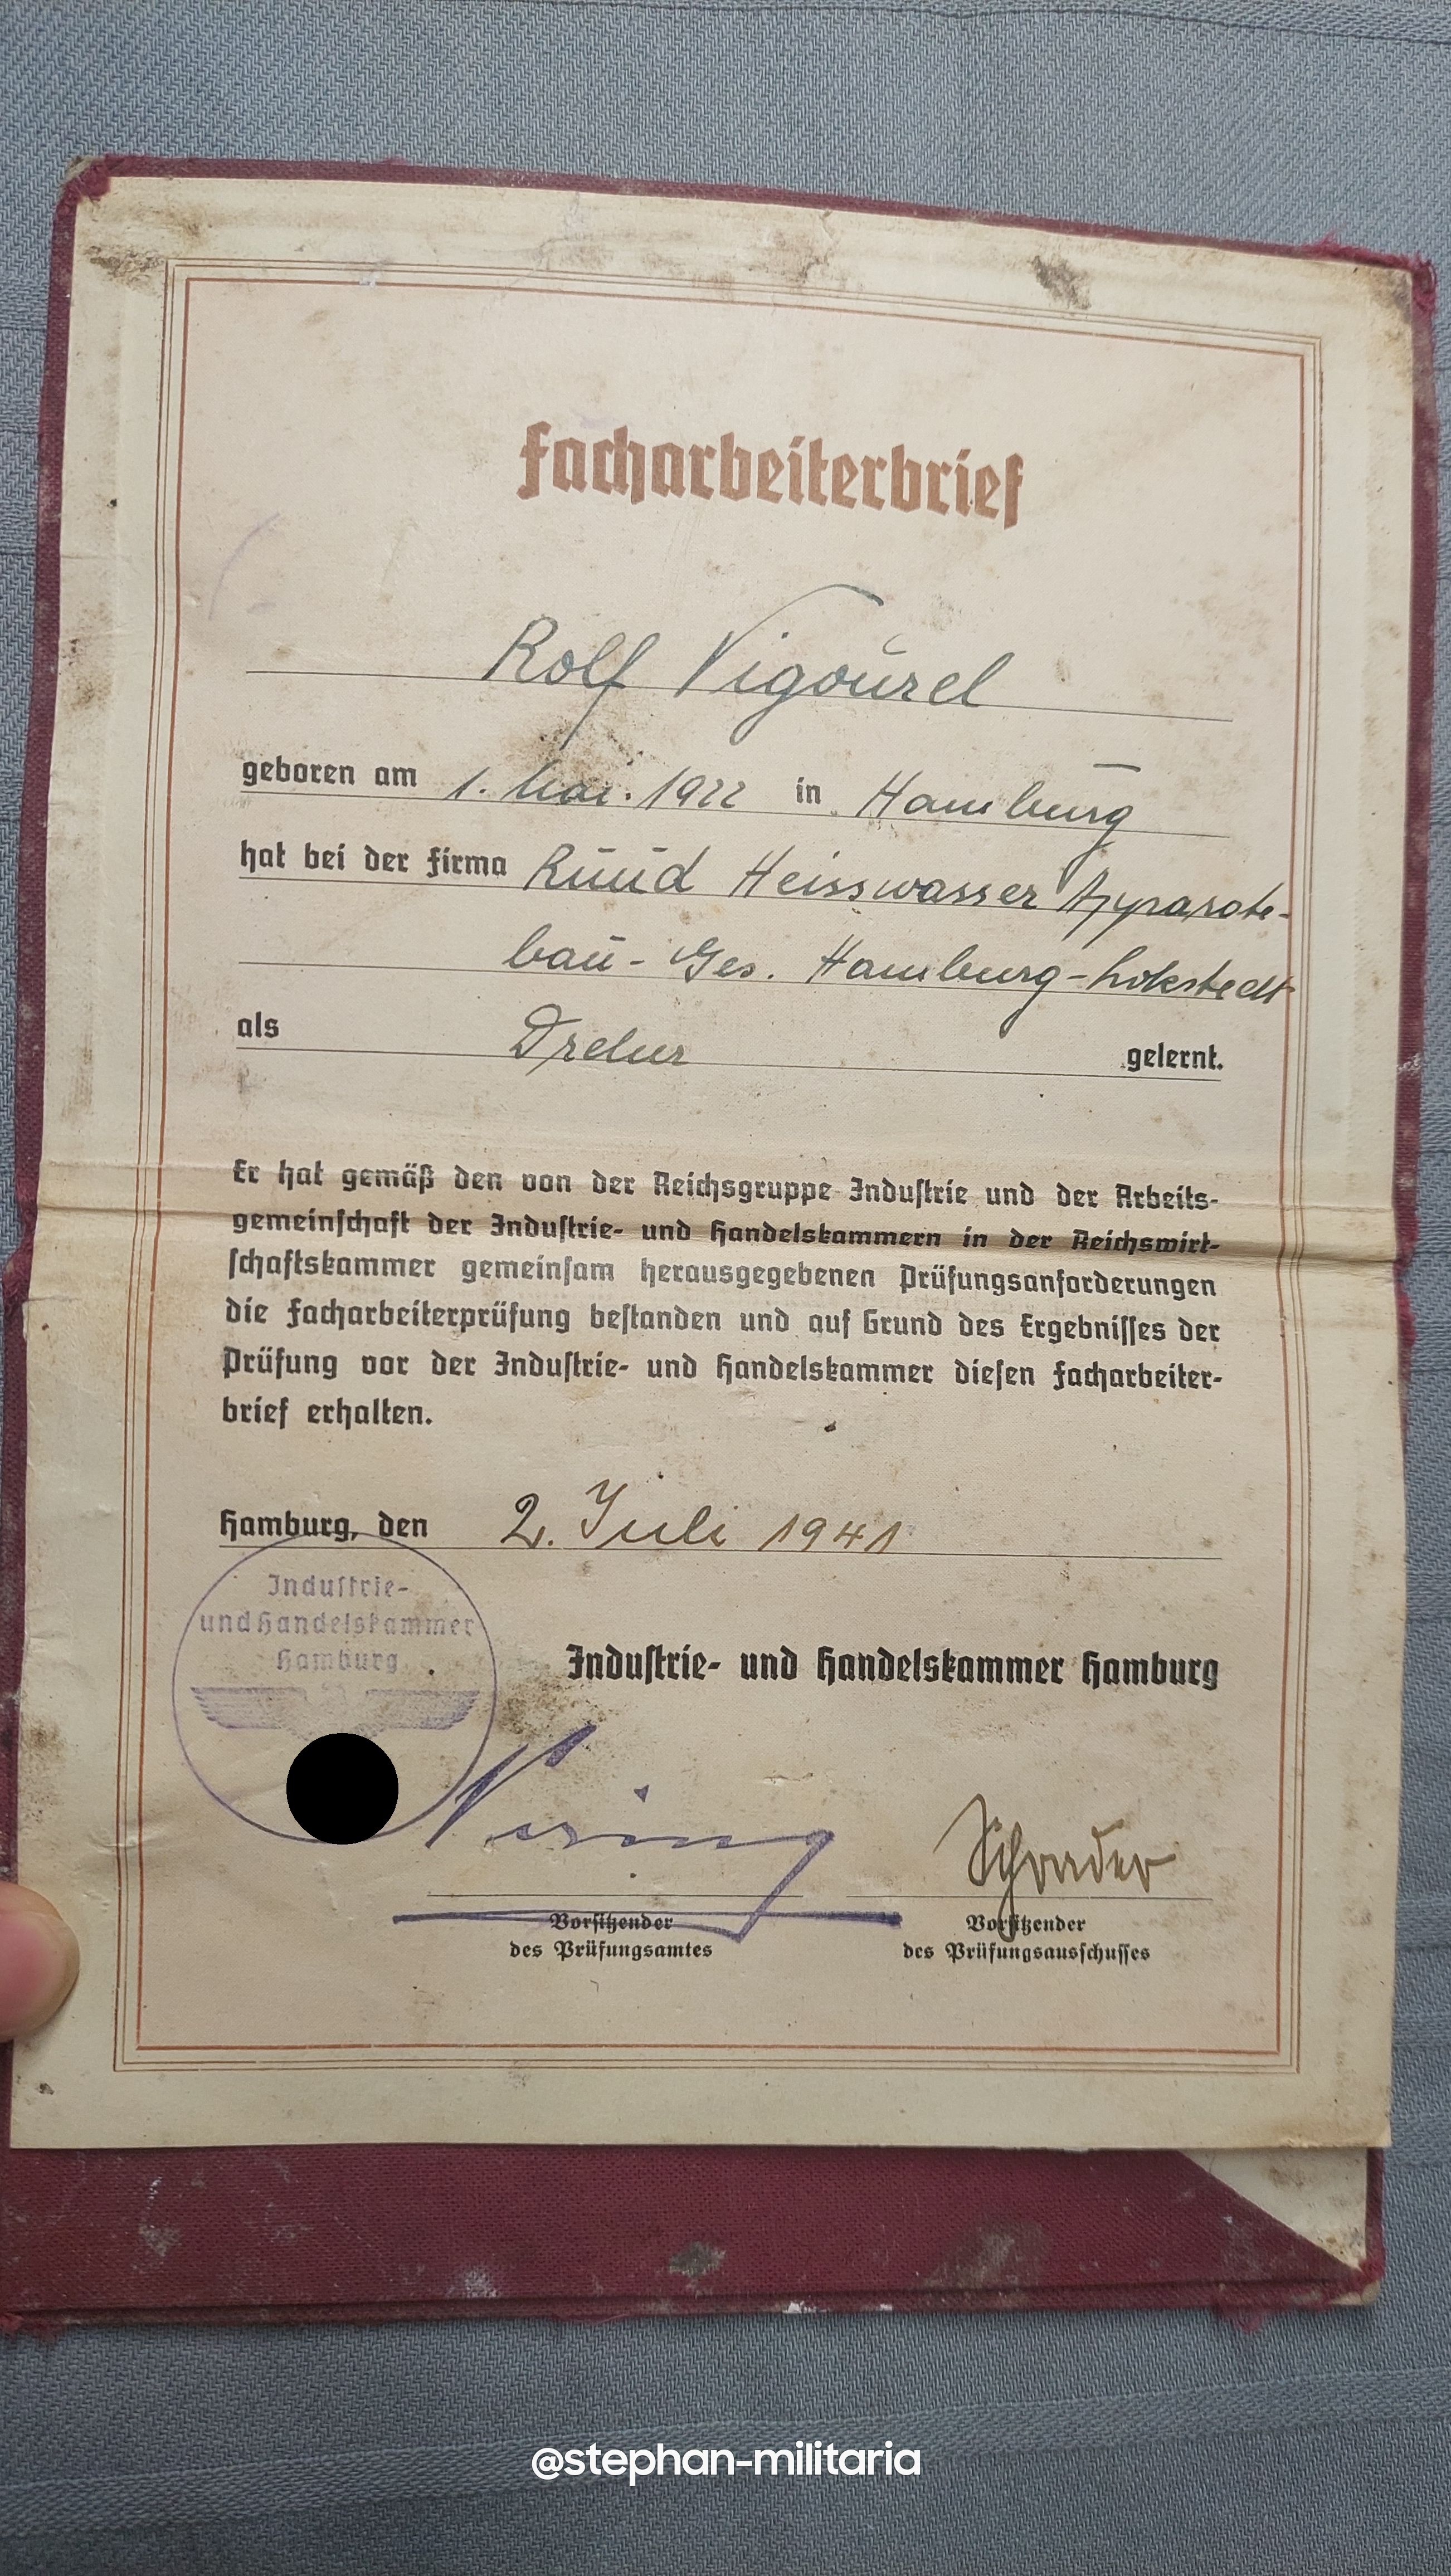 Facharbeiterbrief
Rolf Vigourel
geboren am 1. Mai. 1922 in Hamburg
hat bei der Firma Ruud Heisswasser Apparate-
bau-Ges. Hamburg-Lokstedt
als Dreher gelernt.
Er hat gemäß den von der Reichsgruppe Industrie und der Arbeits-
gemeinschaft der Industrie- und Handelskammern in der Reichswirt-
schaftskammer gemeinsam herausgegebenen Prüfungsanforderungen
die Facharbeiterprüfung bestanden und auf Grund des Ergebnisses der
Prüfung vor der Industrie- und Handelskammer diesen Facharbeiter-
brief erhalten.
Hamburg, den 2. Juli 1941
Industrie-
und Handelskammer
Hamburg
Industrie- und Handelskammer Hamburg
Schrader
Vorsitzender
des Prüfungsamtes
Vorsitzender
des Prüfungsausschusses
@stephan-militaria